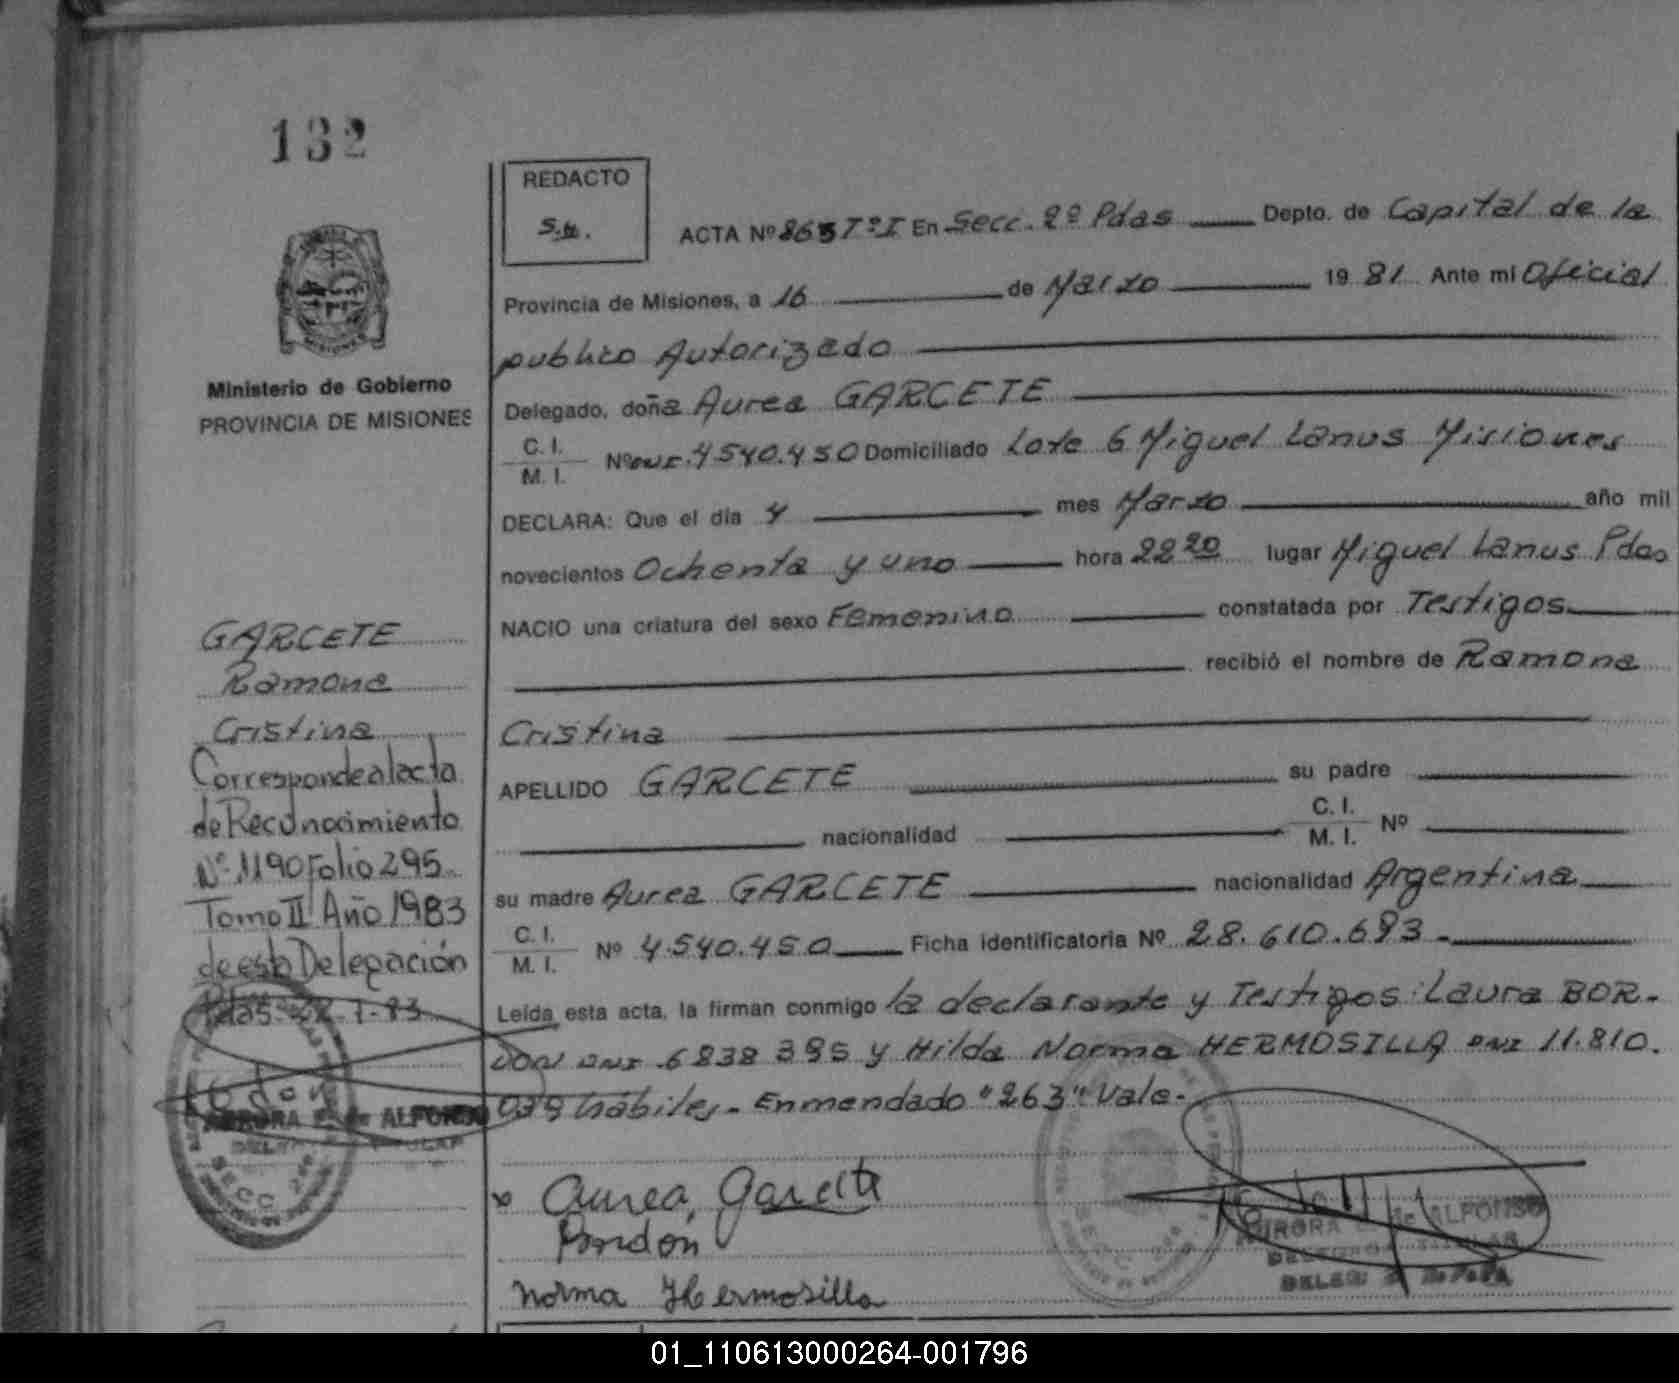 132
REDACTO
ACTA Nº 263 Tº I En Secc. 2º Pdas Depto. de Capital de la
Provincia de Misiones, a 16 de Marzo 19 81 Ante mi Oficial
publico Autorizado
Ministerio de Gobierno
PROVINCIA DE MISIONES
Delegado, doña Aurea GARCETE
C. I.
M. I.
Nº DNI. 4540.450 Domiciliado Lote 6 Miguel Lanus Misiones
DECLARA: Que el día 4 mes Marzo año mil
novecientos Ochenta y uno hora 22 20 lugar Miguel Lanus Pdas
NACIO una criatura del sexo Femenino constatada por Testigos
recibió el nombre de Ramona
Cristina
APELLIDO GARCETE su padre
nacionalidad C. I.
M. I. Nº
su madre Aurea GARCETE nacionalidad Argentina
C. I.
M. I.
Nº 4.540.450 Ficha identificatoria Nº 28.610.693.-
Leída esta acta, la firman conmigo la declarante y Testigos: Laura BOR-
DON DNI .6838 395 y Hilda Norma HERMOSILLA DNI 11.810.
039 hábiles.- Enmendado "263" Vale.-
GARCETE
Ramona
Cristina
Corresponde al acta
de Reconocimiento
Nº 1190 Folio 295
Tomo II Año 1983
de esta Delegación
AURORA de ALFONSO
SECC
x Aurea, Garcete
Bordón
Norma Hermosilla
AURORA de ALFONSO
DELEGADA TITULAR
01_110613000264-001796